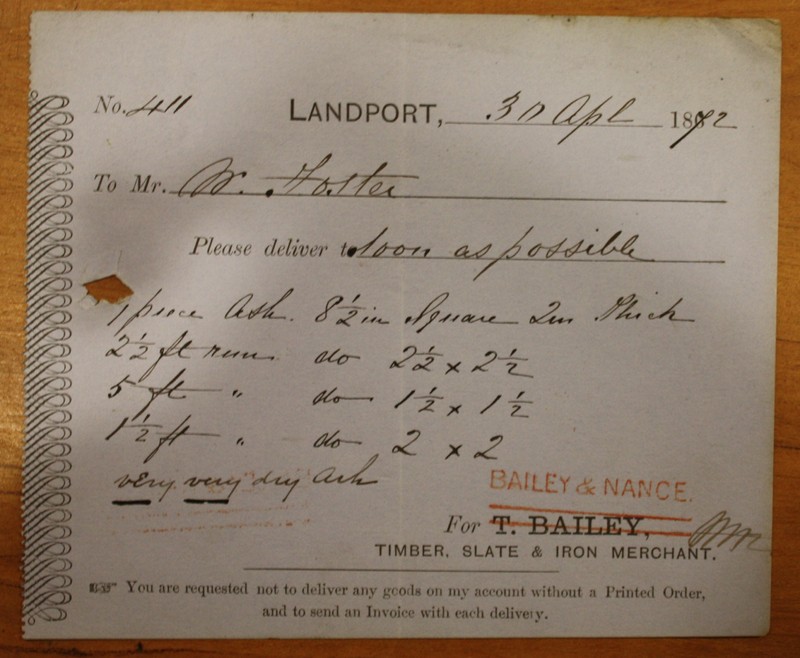 No. 411 LANDPORT, 30 Apl 1892
To Mr. W. Foster
Please deliver t soon as possible
1 piece Ash. 8 1/2 in Square 2in Thick
2 1/2 ft run do 2 1/2 x 2 1/2
5 ft " do 1 1/2 x 1 1/2
1 1/2 ft " do 2 x 2
very very dry Ash
BAILEY & NANCE.
For T. BAILEY,
TIMBER, SLATE & IRON MERCHANT.
You are requested not to deliver any goods on my account without a Printed Order,
and to send an Invoice with each delivery.